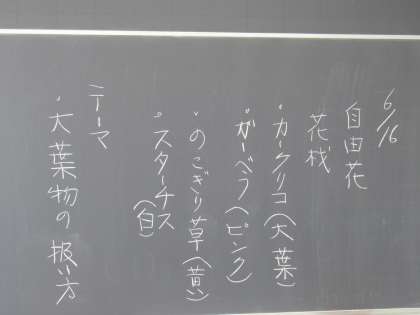 6/16
自由花
花材
・カークリコ(大葉)
・ガーベラ(ピンク)
・のこぎり草(黄い)
・スターチス(白)
テーマ
・大葉物の扱い方